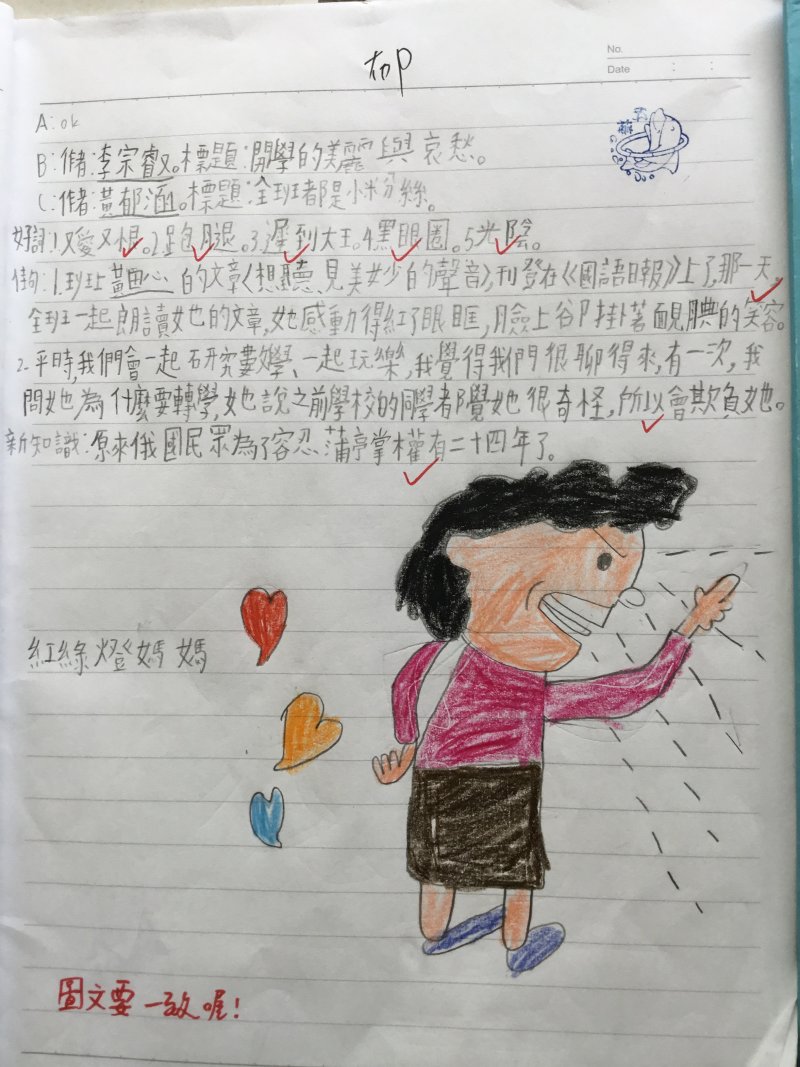 No.
Date : :
A:ok
B:作者:李宗睿。標題:開學的美麗與哀愁。
C:作者:黃郁涵。標題:全班都是小米粉絲。
好詞:1.又愛又恨。2.跑腿。3.遲到大王。4.黑眼圈。5.光陰。
佳句:1.班上黃思心的文章《想聽見美妙的聲音》,刊登在《國語日報》上了,那一天,
全班一起朗讀她的文章,她感動得紅了眼眶,臉上卻掛著靦腆的笑容。
2.平時,我們會一起研究數學、一起玩樂,我覺得我們很聊得來,有一次,我
問她為什麼要轉學,她說之前學校的同學都覺她很奇怪,所以會欺負她。
新知識:原來俄國民眾為了容忍蒲亭掌權有二十四年了。
紅綠燈媽媽
圖文要一致喔!